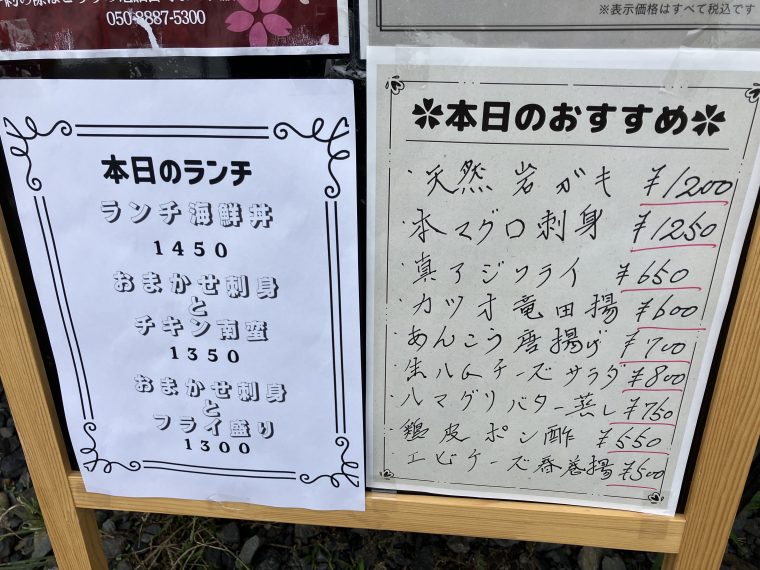 050-8887-5300
※表示価格はすべて税込です
本日のランチ
ランチ海鮮丼
1450
おまかせ刺身
と
チキン南蛮
1350
おまかせ刺身
と
フライ盛り
1300
本日のおすすめ
・天然岩ガキ ¥1200
・本マグロ刺身 ¥1250
・真アジフライ ¥650
・カツオ竜田揚 ¥600
・あんこう唐揚げ ¥700
・生ハムチーズサラダ ¥800
・ハマグリバター蒸し ¥750
・鶏皮ポン酢 ¥550
・エビチーズ春巻揚 ¥500